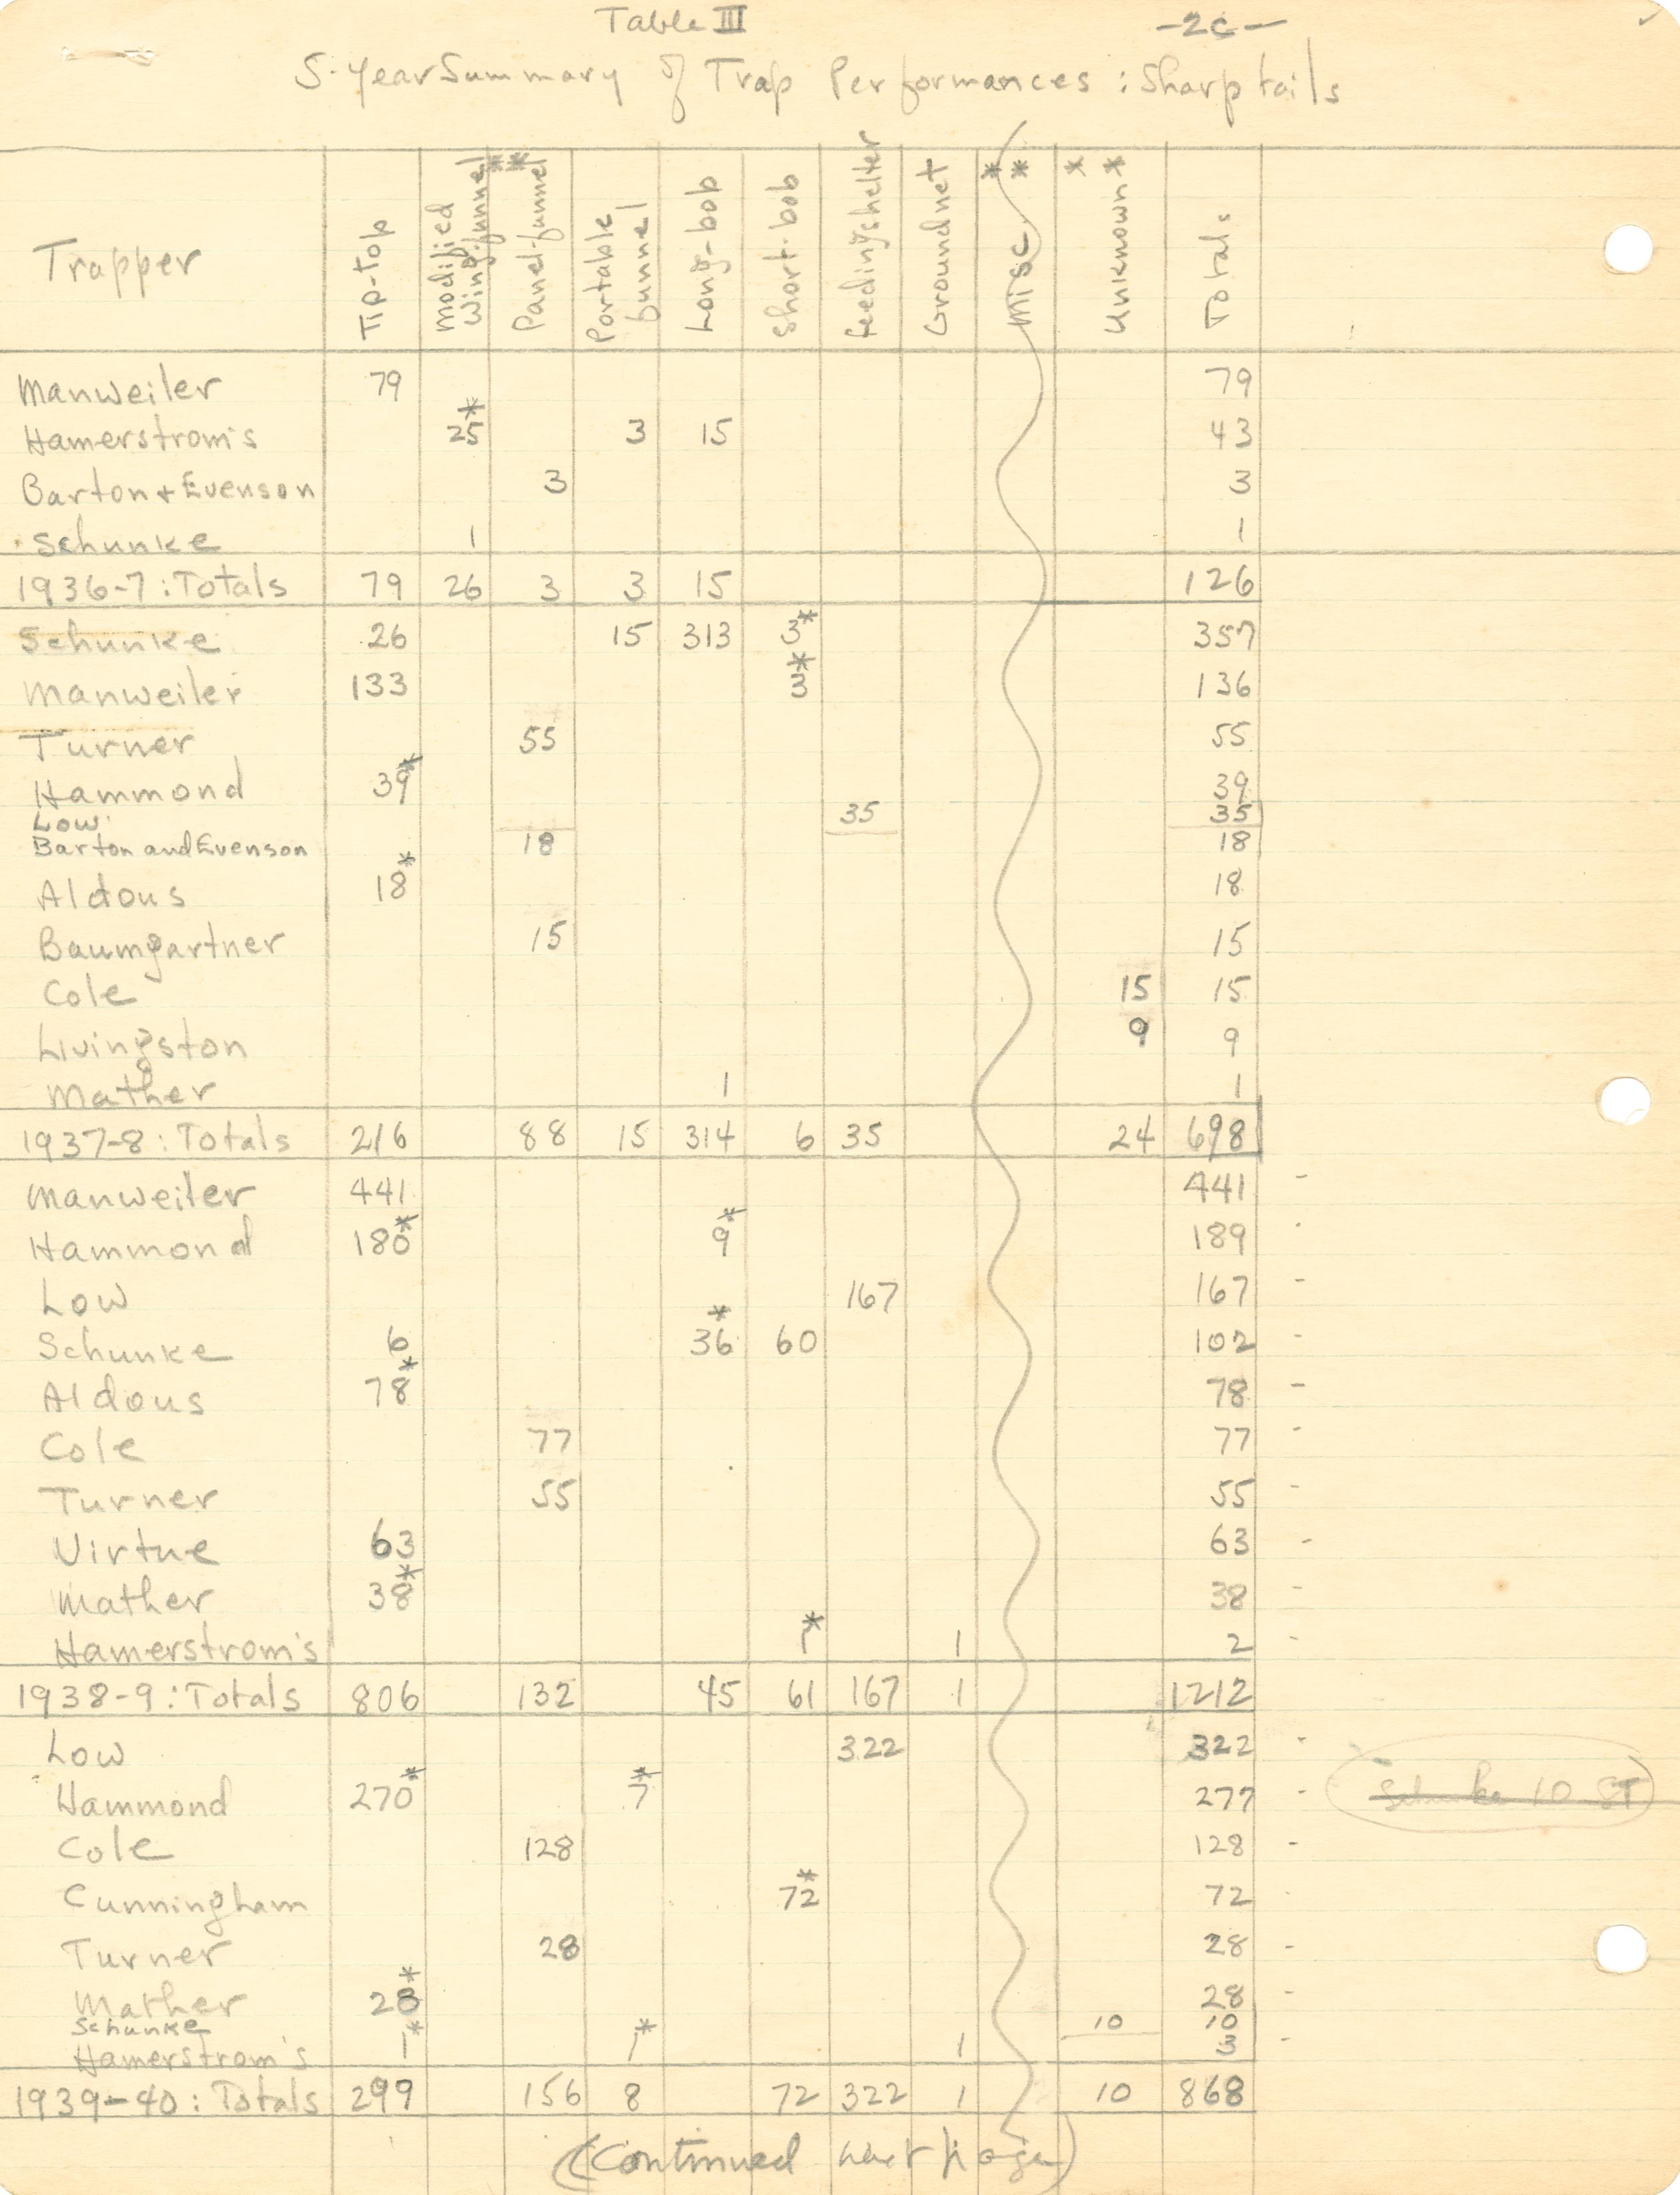 Table III -2c-
5-Year Summary of Trap Performances : Sharptails
Trapper Tip-top Modified Wing-funnel** Panel-funnel Portable funnel Long-bob Short-bob feeding shelter Ground net Misc ** Unknown ** Totals
Manweiler 79 79
Hamerstrom's 25* 3 15 43
Barton + Evenson 3 3
Schunke 1 1
1936-7 : Totals 79 26 3 3 15 126
Schunke 26 15 313 3* 357
Manweiler 133 3* 136
Turner 55 55
Hammond 39* 39
Low 35 35
Barton and Evenson 18 18
Aldous 18* 18
Baumgartner 15 15
Cole 15 15
Livingston 9 9
Mather 1 1
1937-8 : Totals 216 88 15 314 6 35 24 698
Manweiler 441 441 -
Hammond 180* 9* 189
Low 167 167 -
Schunke 6 36* 60 102 -
Aldous 78* 78 -
Cole 77 77 -
Turner 55 55 -
Virtue 63 63 -
Mather 38* 38 -
Hamerstrom's 1* 1 2 -
1938-9 : Totals 806 132 45 61 167 1 1212
Low 322 322 -
Hammond 270* 7* 277 - Schunke 10 ST
Cole 128 128 -
Cunningham 72* 72
Turner 28 28 -
Mather 28* 28 -
Schunke 10 10
Hamerstrom's 1* 1* 1 3 -
1939-40 : Totals 299 156 8 72 322 1 10 868
(Continued next page)